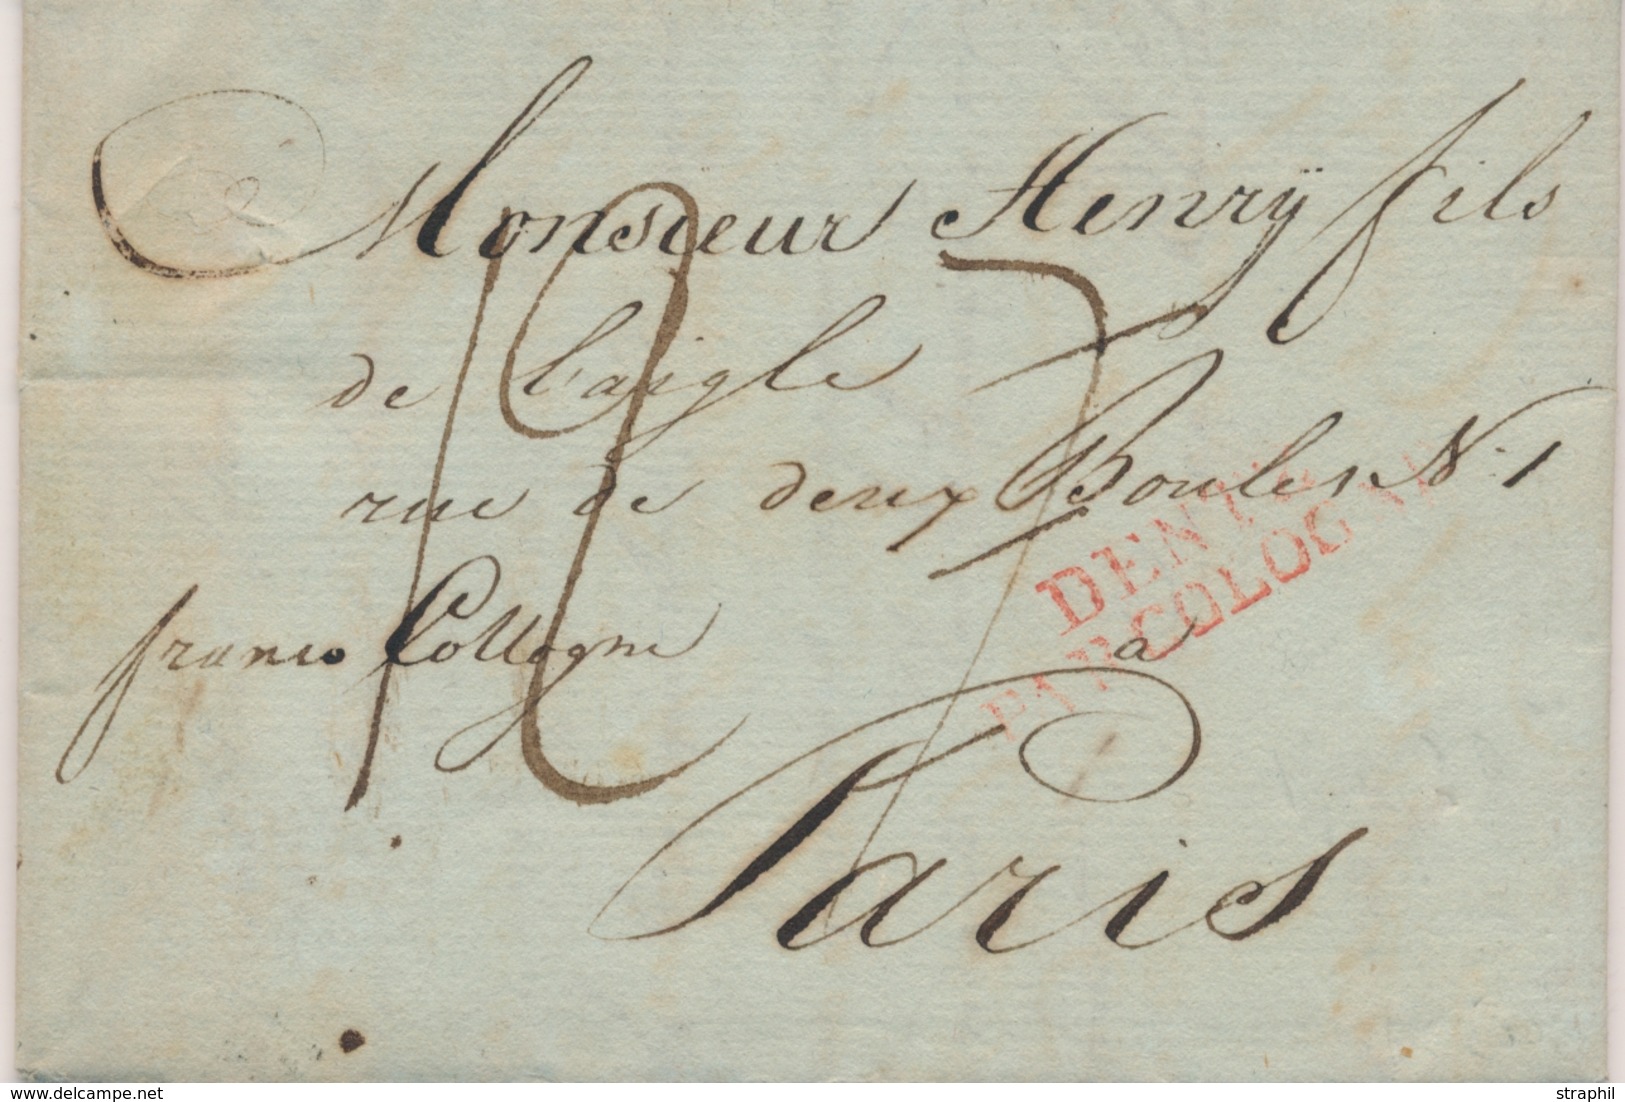 Monsieur Henrÿ fils
de l'aigle
rue de deux Boules N. 1
franco Collogne
a
Paris
PAR COLOGNE
www.delcampe.net
straphil